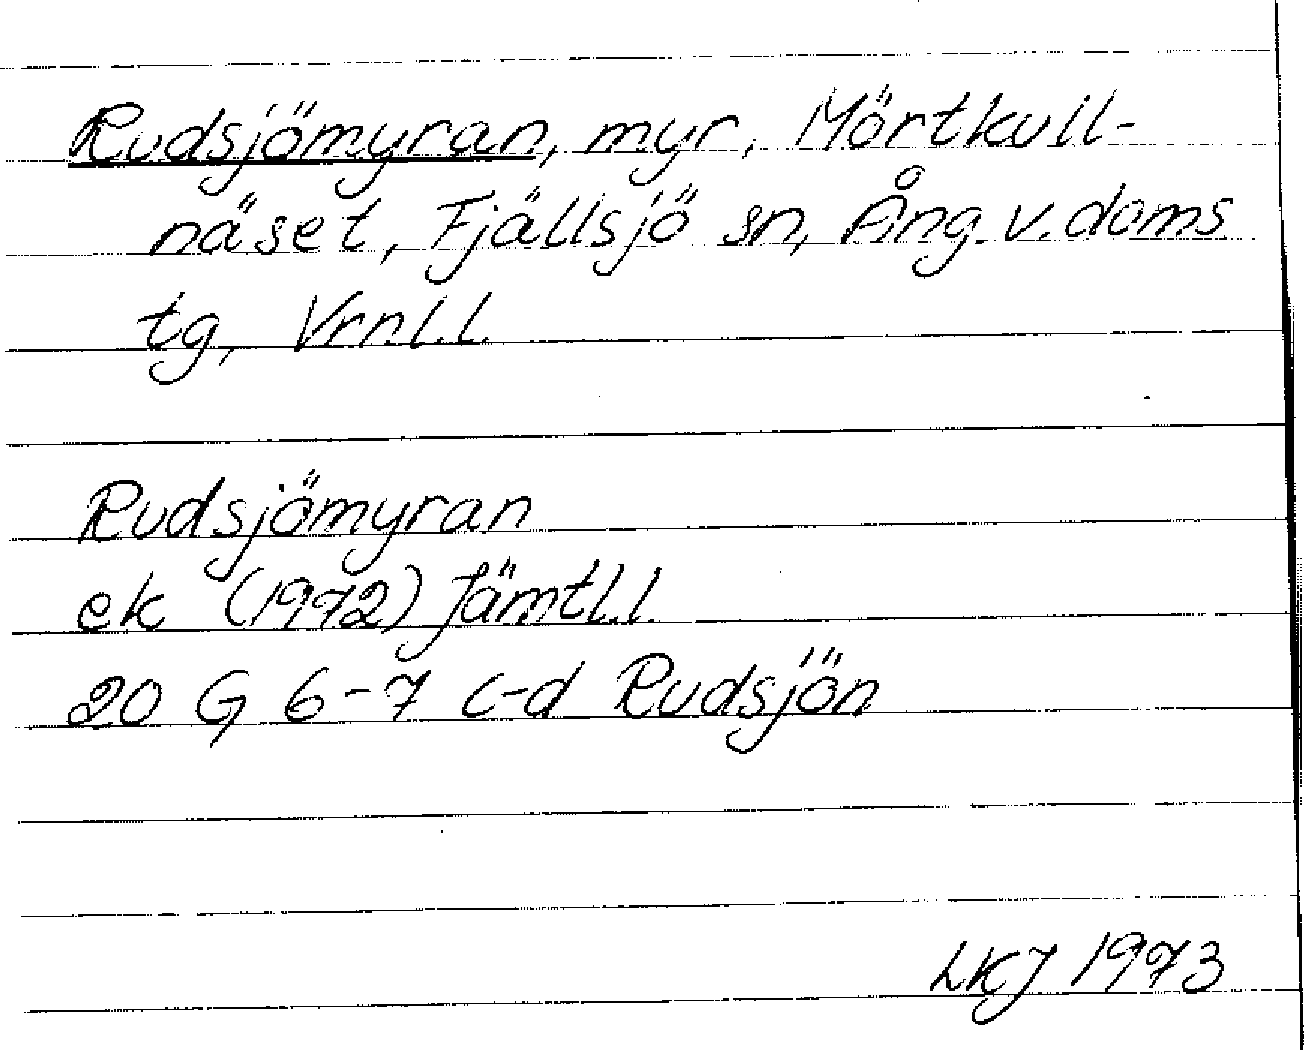 Rudsjömyran, myr, Mörtkull-
näset, Fjällsjö sn, Ång. v. doms
tg, Vrnl.l.
Rudsjömyran
ek (1972) Jämtl.l.
20 G 6-7 c-d Rudsjön
LKJ 1973